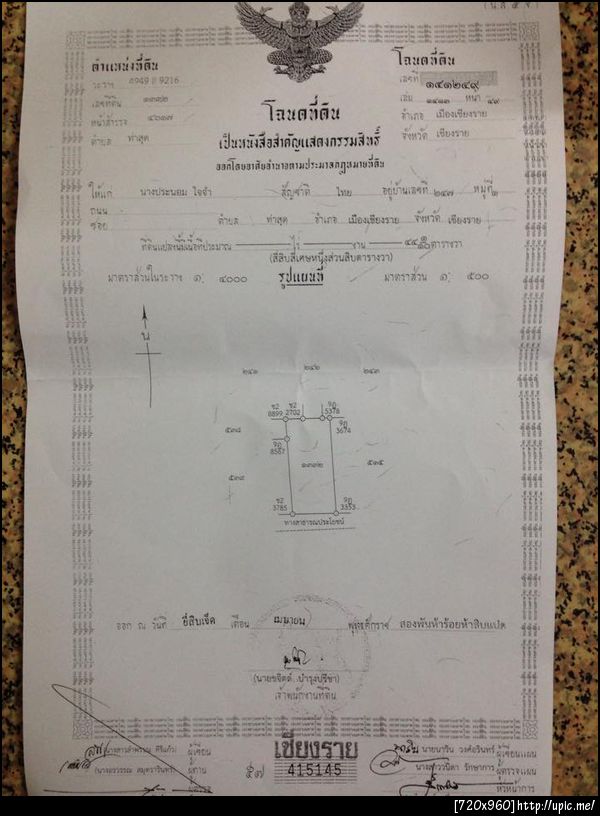 (น.ส ๔ จ)
ตำแหน่งที่ดิน
ระวาง 4949 II 9216
เลขที่ดิน ๑๓๓๒
หน้าสำรวจ ๔๖๑๗
ตำบล ท่าสุด
โฉนดที่ดิน
เลขที่ ๑๔๑๒๔๙
เล่ม ๑๔๑๓ หน้า ๔๙
อำเภอ เมืองเชียงราย
จังหวัด เชียงราย
โฉนดที่ดิน
เป็นหนังสือสำคัญแสดงกรรมสิทธิ์
ออกโดยอาศัยอำนาจตามประมวลกฎหมายที่ดิน
ให้แก่ นางประนอม ใจจำ สัญชาติ ไทย อยู่บ้านเลขที่ ๒๔๗ หมู่ที่ ๑
ถนน
ซอย ตำบล ท่าสุด อำเภอ เมืองเชียงราย จังหวัด เชียงราย
ที่ดินแปลงนี้มีเนื้อที่ประมาณ ไร่ งาน ๔๔ ๑/๑๐ ตารางวา
(สี่สิบสี่เศษหนึ่งส่วนสิบตารางวา)
มาตราส่วนในระวาง ๑: ๔๐๐๐ รูปแผนที่ มาตราส่วน ๑: ๕๐๐
น
๒๔๑ ๒๔๒ ๒๔๓
ช2 8899
ช2 2702
9ฦ 5378
9ฦ 3674
๕๓๘
9ฦ 8587
๑๓๓๒
๕๓๕
๕๓๙
ช2 3785
9ฦ 3353
ทางสาธารณประโยชน์
ออก ณ วันที่ ยี่สิบเจ็ด เดือน เมษายน พุทธศักราช สองพันห้าร้อยห้าสิบแปด
(นายขจิตต์ บำรุงปรีชา)
เจ้าพนักงานที่ดิน
ผู้เขียน
ผู้ทาน
เชียงราย
๕๗ 415145
นายนาริน วงค์อรินทร์ ผู้เขียนแผน
นางสาววนิดา รักษาการ ผู้ตรวจแผน
หัวหน้าการ
[720x960]http://upic.me/